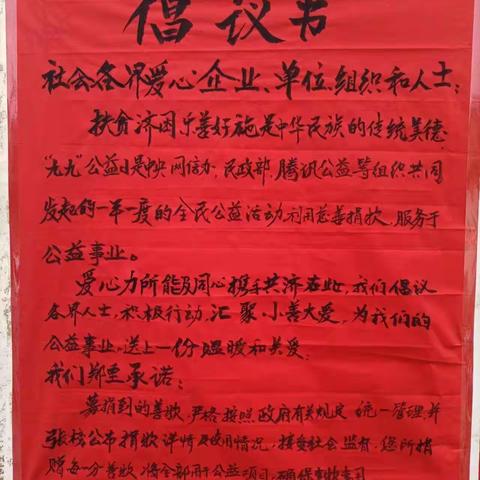 倡议书
社会各界爱心企业、单位、组织和人士：
扶贫济困乐善好施是中华民族的传统美德，
“九九”公益日是中央网信办、民政部、腾讯公益等组织共同
发起的一年一度的全民公益活动，利用慈善捐款，服务于
公益事业。
爱心力所能及，同心携手共济在此，我们倡议
各界人士，积极行动，汇聚小善大爱，为我们的
公益事业，送上一份温暖和关爱：
我们郑重承诺：
募捐到的善款，严格按照政府有关规定统一管理，并
张榜公布捐款详情及使用情况，接受社会监督，您所捐
赠每一分善款，将全部用于公益项目，确保专款专用